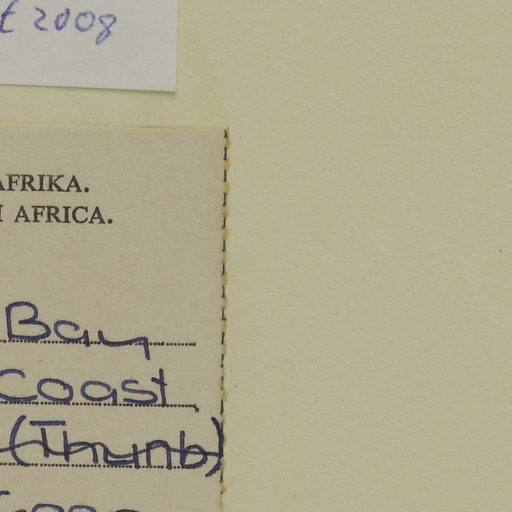 t 2008
AFRIKA.
AFRICA.
Bay
Coast
(Thunb)